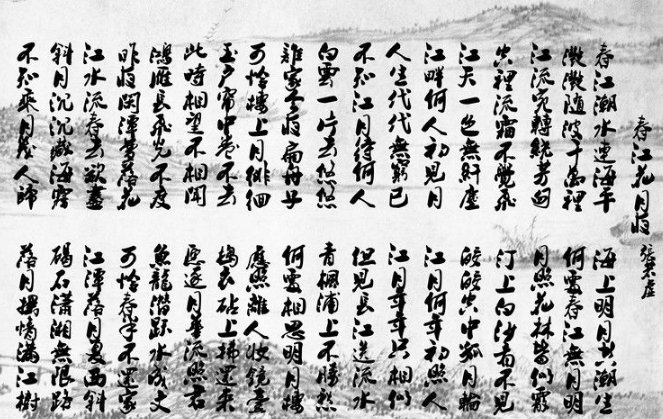 春江花月夜 張若虛
春江潮水連海平 海上明月共潮生
灩灩随波千萬裡 何處春江無月明
江流宛轉繞芳甸 月照花林皆似霰
空裡流霜不覺飛 汀上白沙看不見
江天一色無纖塵 皎皎空中孤月輪
江畔何人初見月 江月何年初照人
人生代代無窮已 江月年年只相似
不知江月待何人 但見長江送流水
白雲一片去悠悠 青楓浦上不勝愁
誰家今夜扁舟子 何處相思明月樓
可怜樓上月徘徊 應照離人妝鏡臺
玉戶簾中卷不去 搗衣砧上拂還來
此時相望不相聞 願逐月華流照君
鴻雁長飛光不度 魚龍潛躍水成文
昨夜閑潭夢落花 可怜春半不還家
江水流春去欲盡 江潭落月复西斜
斜月沉沉藏海霧 碣石瀟湘無限路
不知乘月幾人歸 落月搖情滿江樹